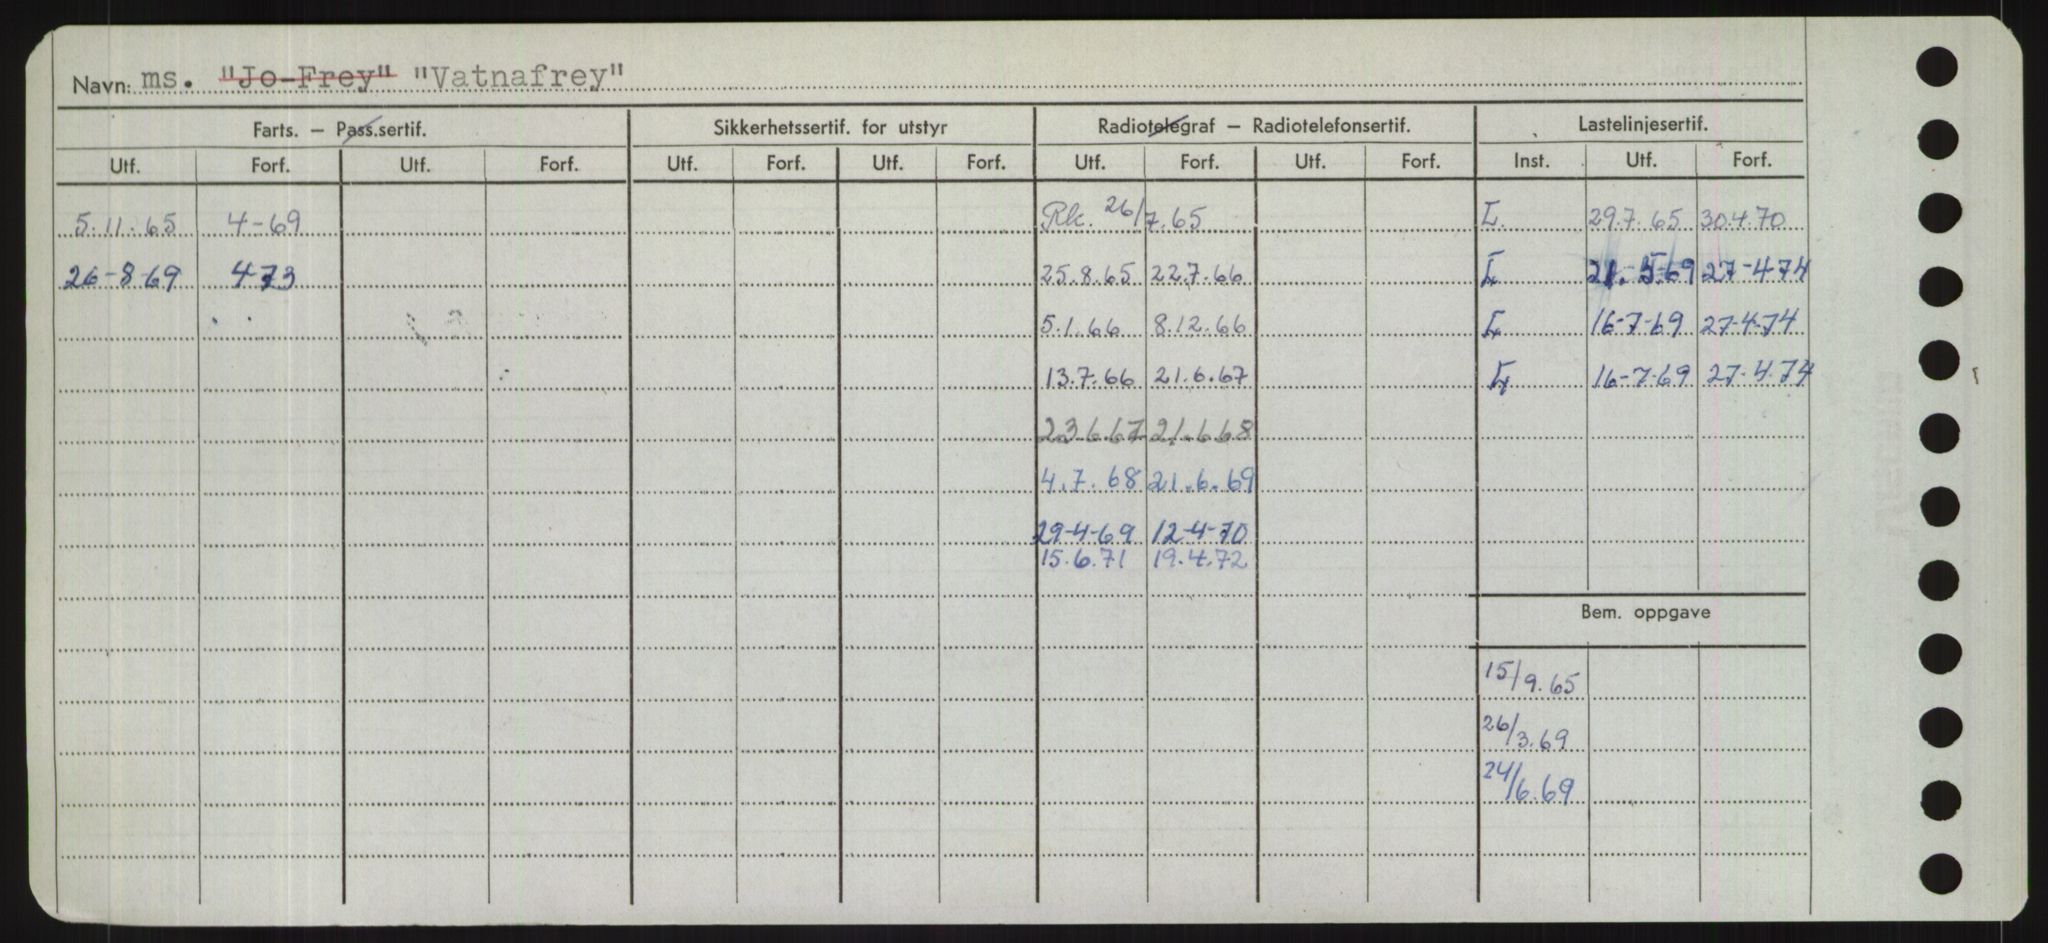 Navn: ms. "Jo-Frey" "Vatnafrey"
Farts. – Pass.sertif. Sikkerhetssertif. for utstyr Radiotelegraf – Radiotelefonsertif. Lastelinjesertif.
Utf. Forf. Utf. Forf. Utf. Forf. Utf. Forf. Utf. Forf. Utf. Forf. Inst. Utf. Forf.
5.11.65 4-69 Rk. 26/7.65 L. 29.7.65 30.4.70
26-8-69 4 73 25.8.65 22.7.66 L 21.5.69 27-4-74
5.1.66 8.12.66 L 16-7-69 27-4-74
13.7.66 21.6.67 16-7-69 27.4.74
23.6.67 21.6.68
4.7.68 21.6.69
29-4-69 12-4-70
15.6.71 19.4.72
Bem. oppgave
15/9.65
26/3.69
24/6.69